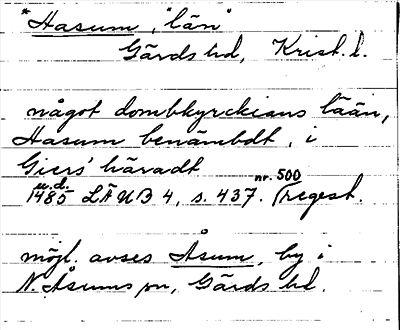 *Hasum, "län"
Gärds hd, Krist. l.
något dombkyrckians lään,
Hasum benämbdt, i
Giers' häradt
u.d.
1485 LÄUB 4, s. 437. nr. 500 (regest.
möjl. avses Åsum, by i
N. Åsums sn, Gärds hd.